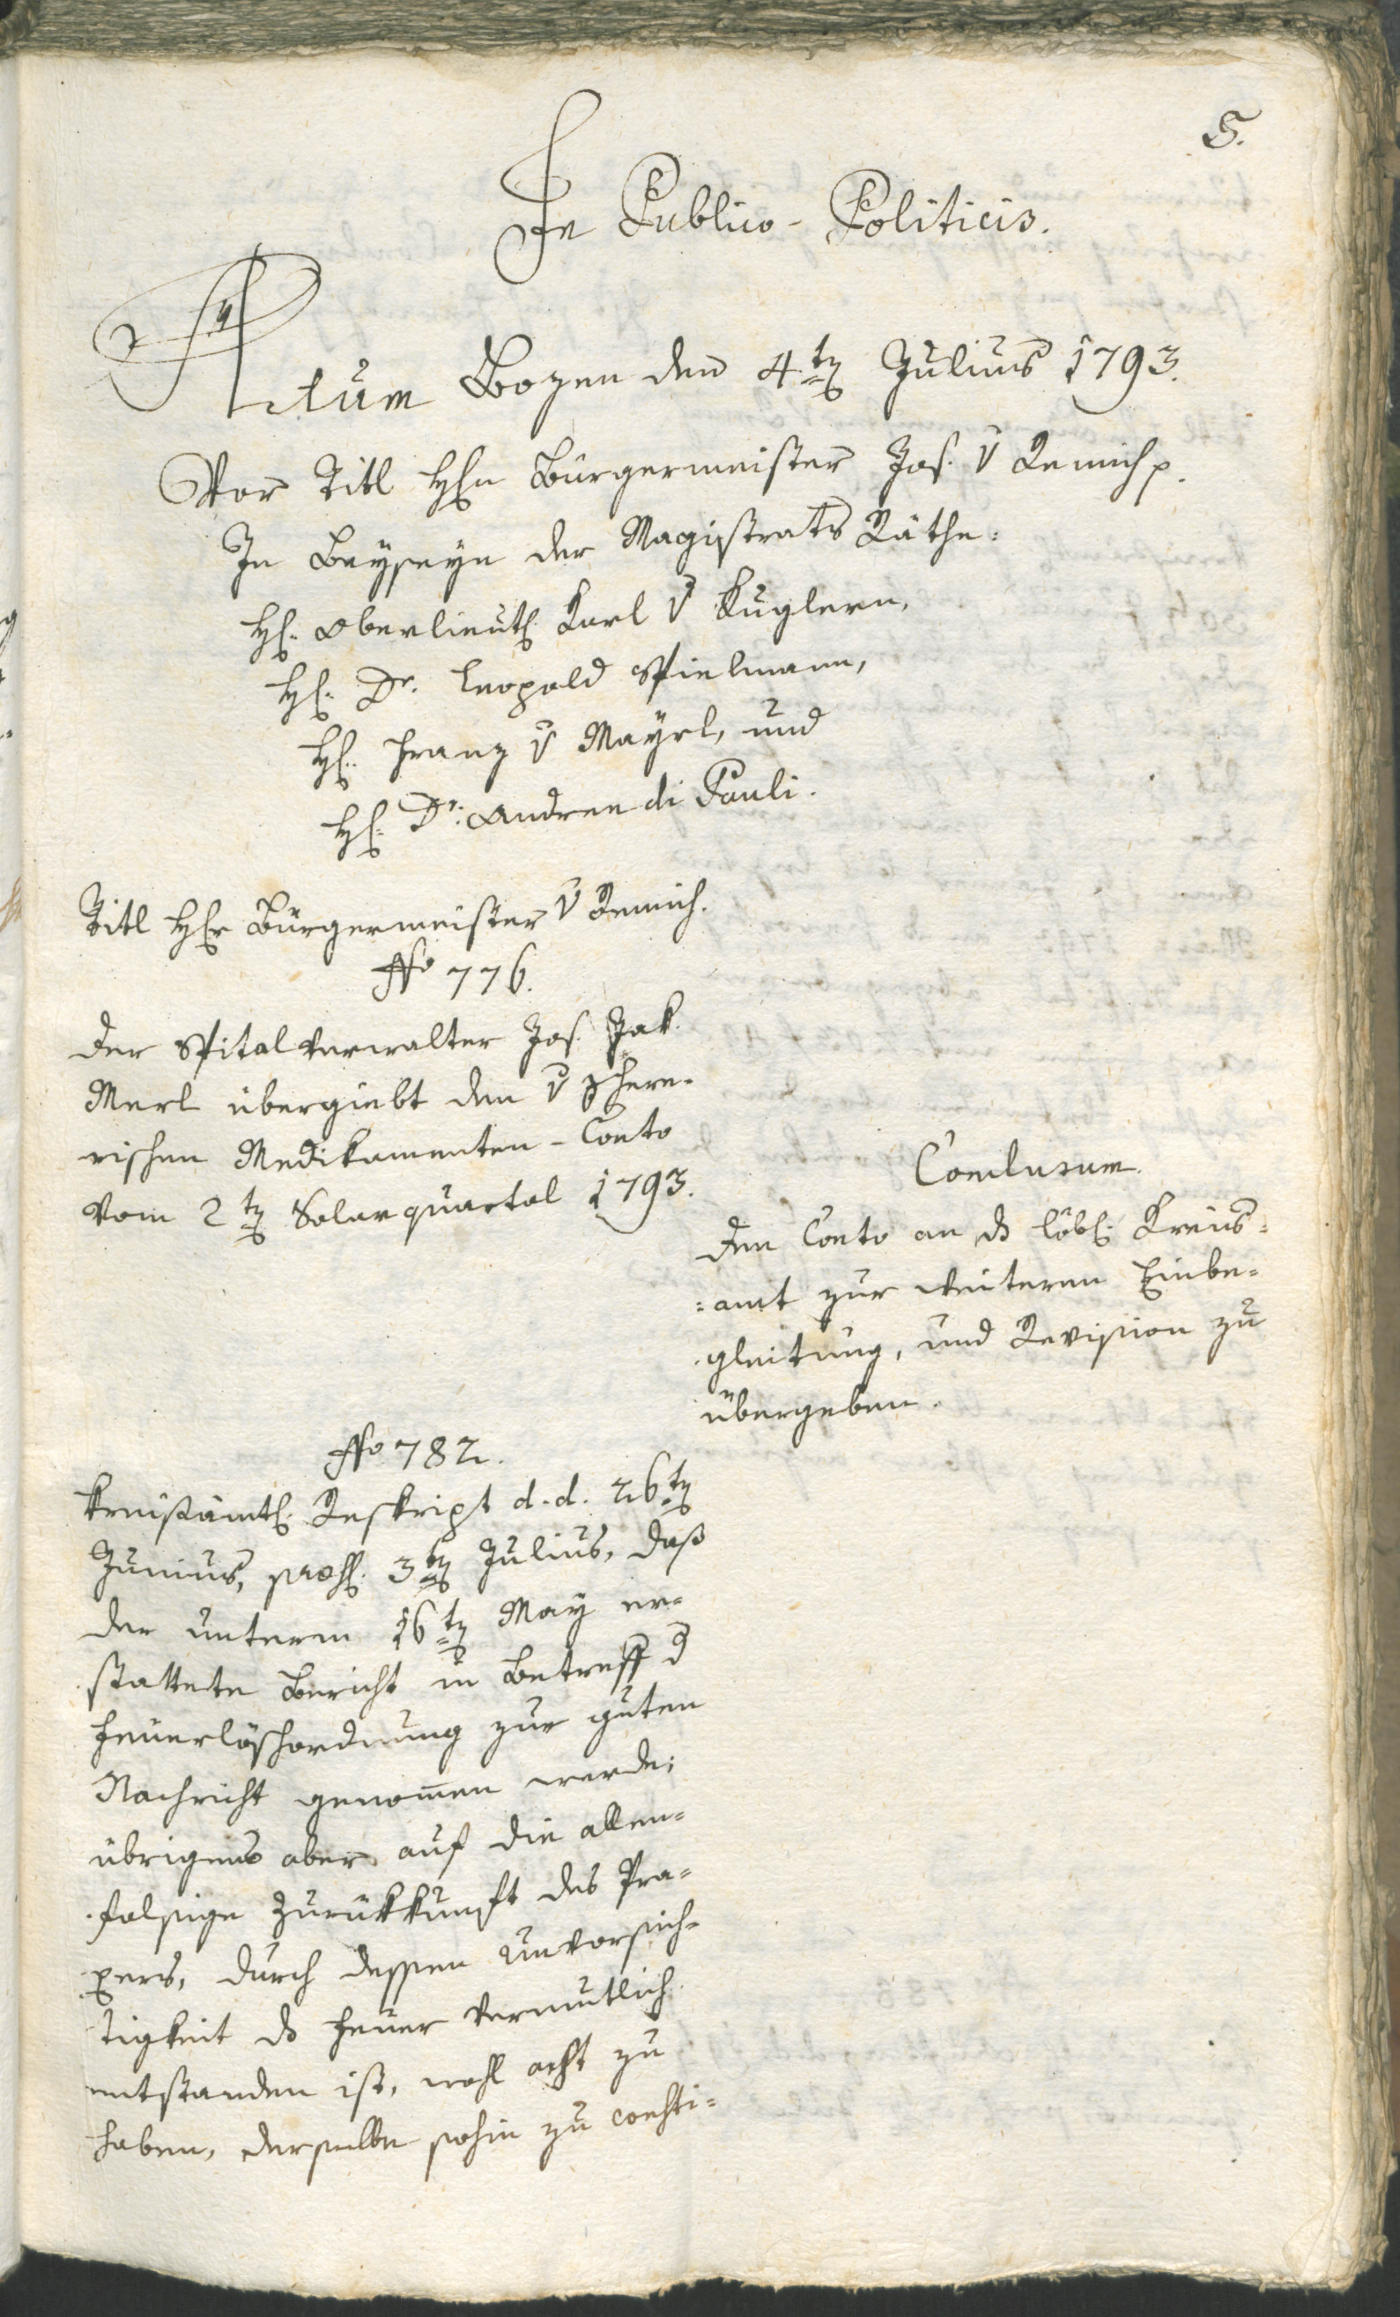 5.
In Publico-Politicis.
Actum Bozen den 4.ten Julius 1793.
Vor Titl Hℓn Bürgermeister Jos. v Remich p.
In Beyseyn der Magistrats Räthe:
Hℓ. Oberlieutℓ. Karl v Kuglern,
Hℓ. Dr. Leopold Spielmann,
Hℓ. Franz v Mayrl, und
Hℓ. Dr: Andree di Pauli.
Titl Hℓr Bürgermeister v Remich.
No 776.
Der Spitalverwalter Jos. Jak.
Merl übergiebt den v Ischree-
rischen Medikamenten-Conto
vom 2ten Solarquartal 1793.
Conclusum.
Den Conto an ds löbℓ. Kreis-
-amt zur weiteren Einbe-
gleitung, und Revision zu
übergeben.
No 782.
Kreisämtℓ. Reskript d. d. 26ten
Junius, 3ten Julius, daß
der unterm 16ten May er-
stattete Bericht in Betreff d
Feuerlöschordnung zur guten
Nachricht genom̅en werde;
übrigens aber auf die allen-
falsige Zurükkunft des Pra-
xers, durch dessen Unvorsich-
tigkeit ds Feuer vermutlich
entstanden ist, wohl acht zu
haben, derselbe sohin zu consti-